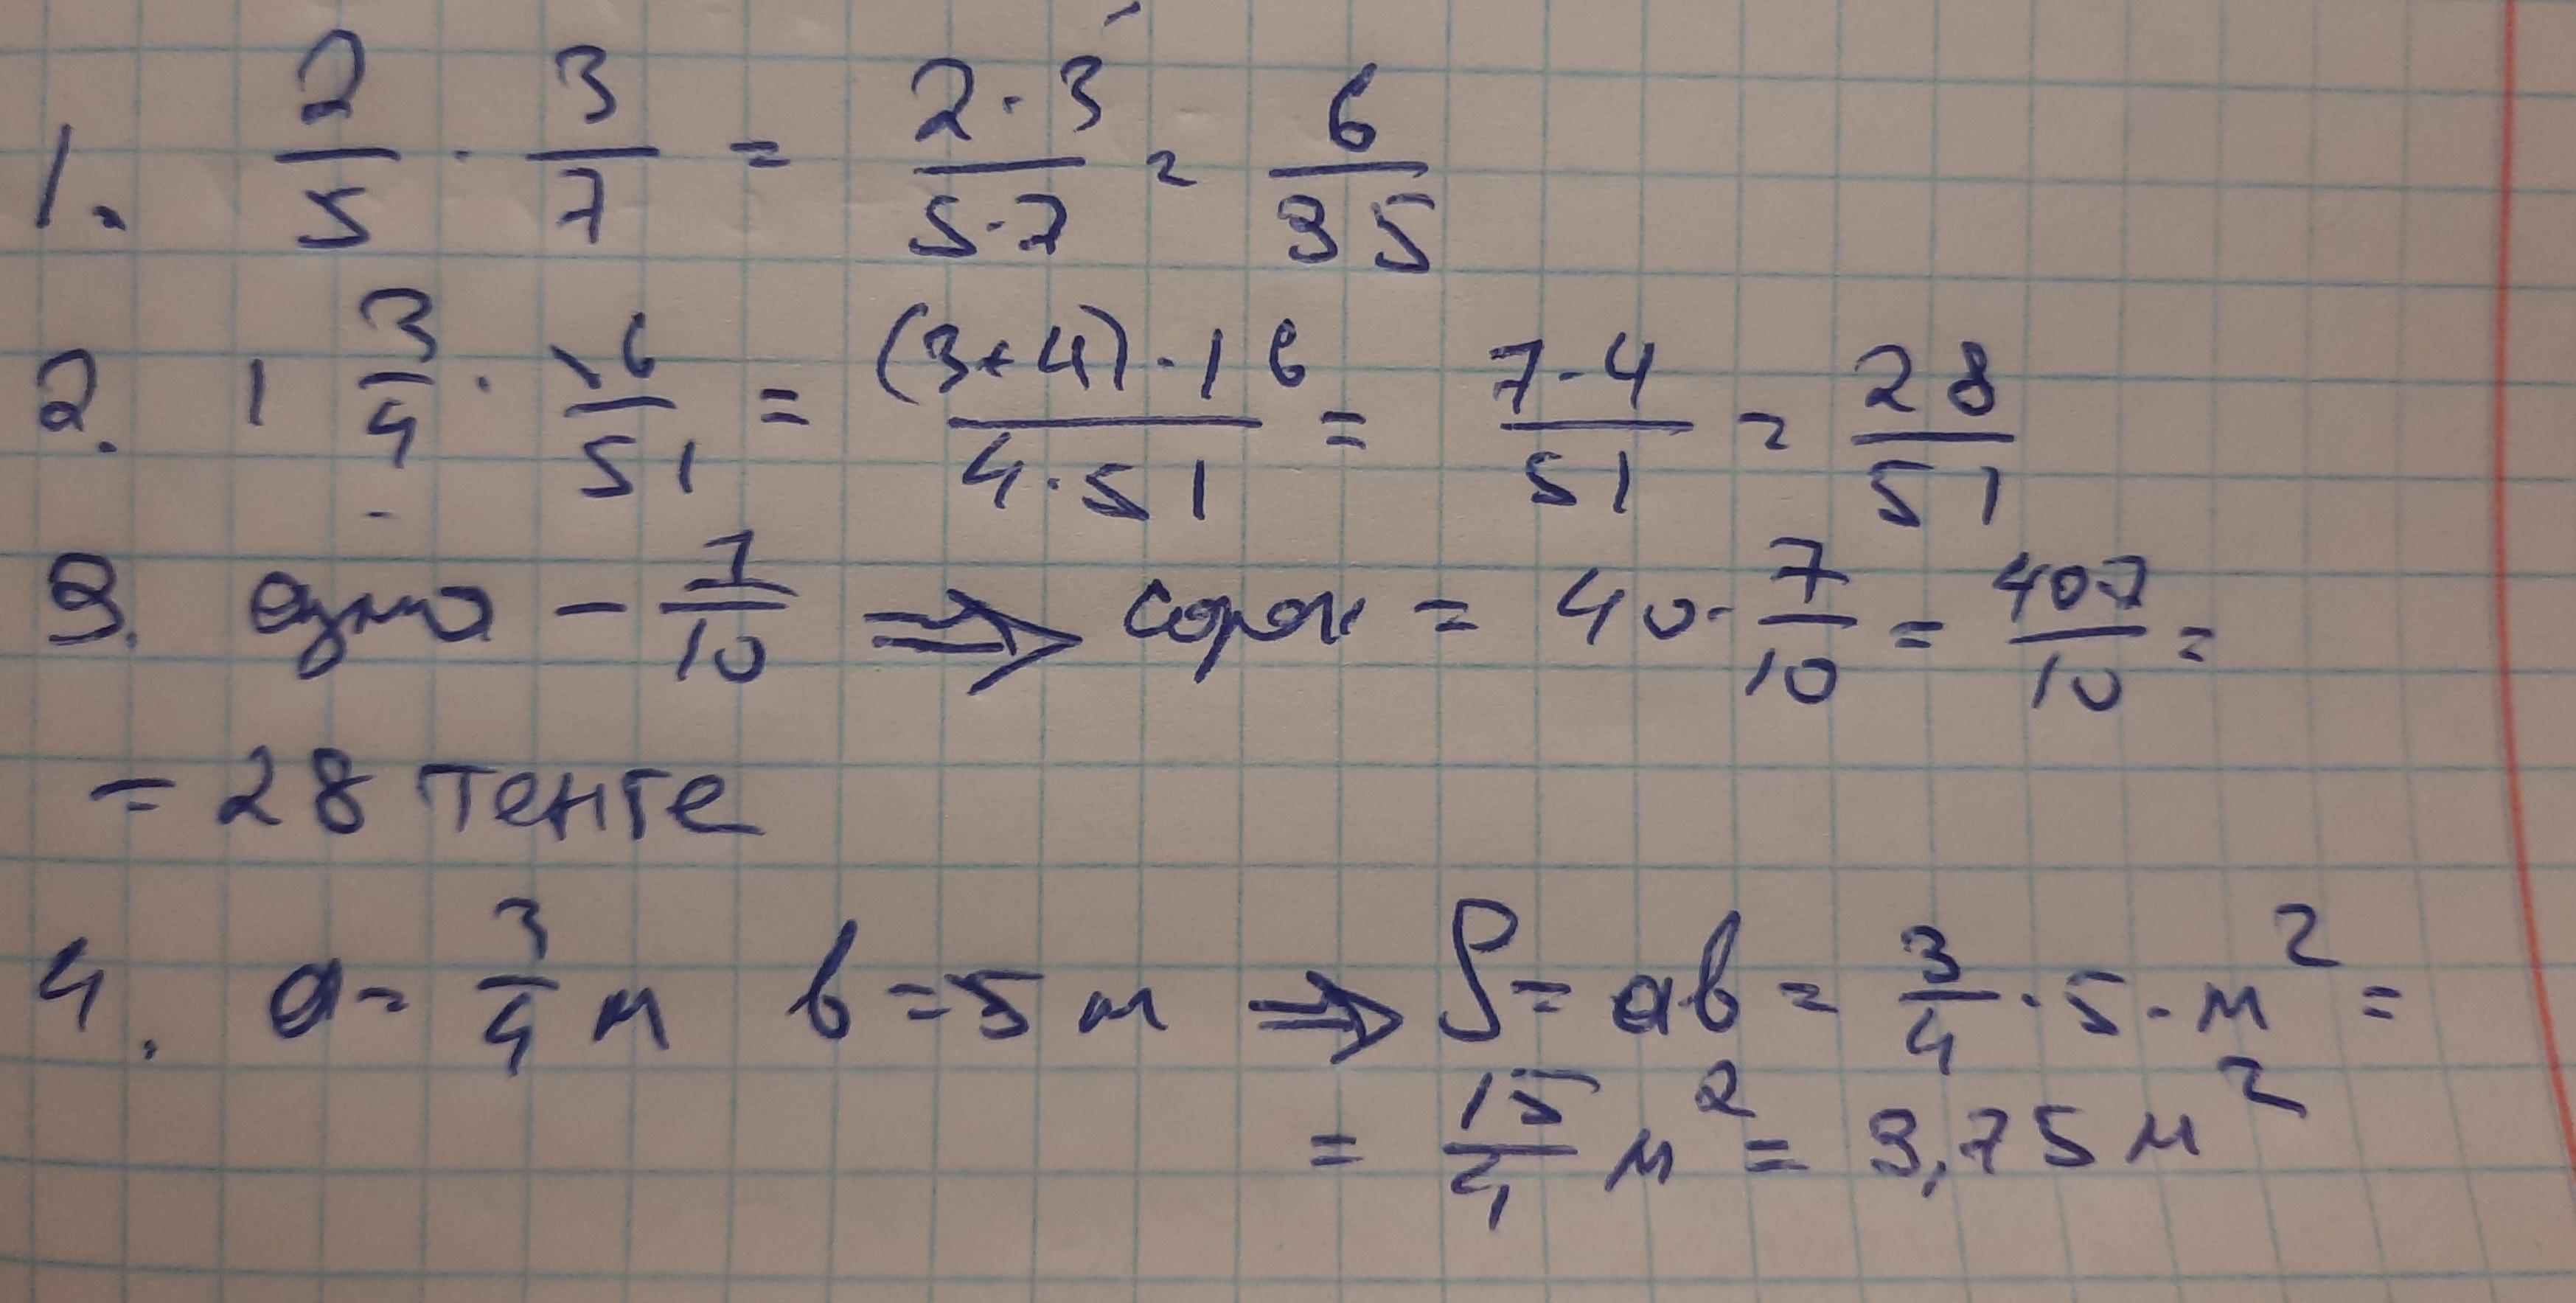 1. 2/5 · 3/7 = 2·3/5·7 = 6/35
2. 1 3/4 · 16/51 = (3+4)·16/4·51 = 7·4/51 = 28/51
3. одно – 7/10 ⇒ сорок = 40· 7/10 = 40·7/10 =
= 28 тенге
4. a = 3/4 м b = 5 м ⇒ S = ab = 3/4 · 5 · м² =
= 15/4 м² = 3,75 м²